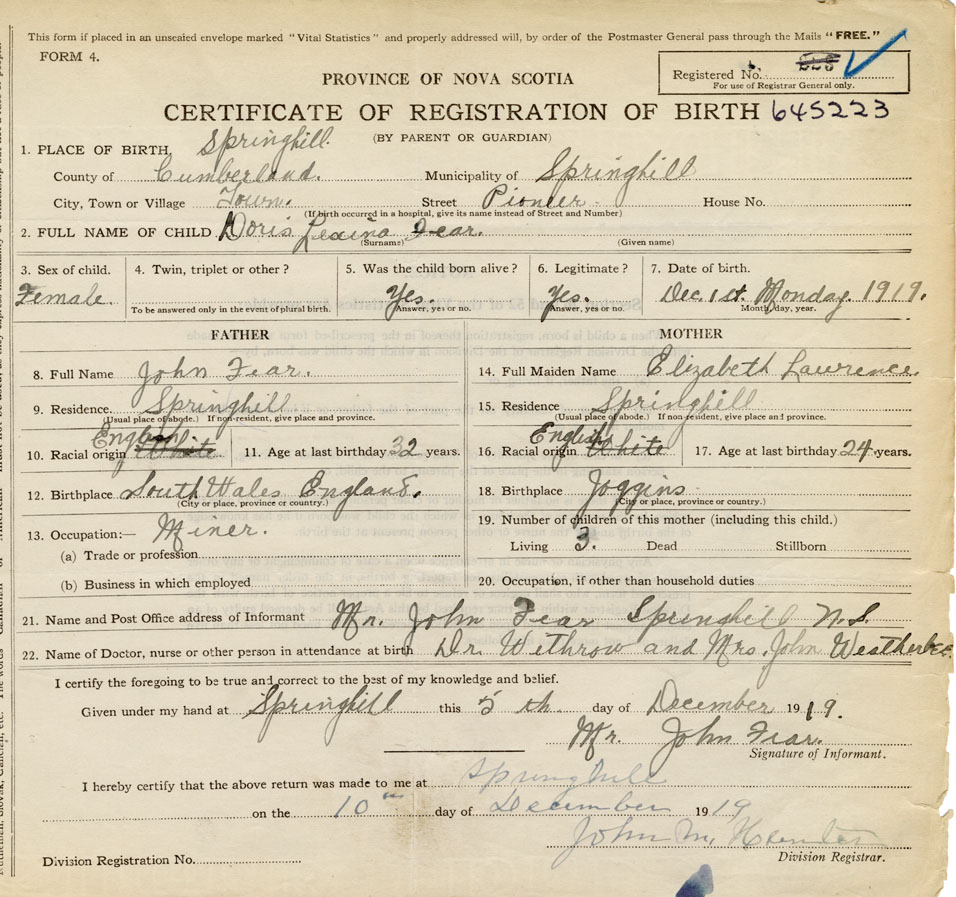 This form if placed in an unsealed envelope marked "Vital Statistics" and properly addressed will, by order of the Postmaster General pass through the Mails "FREE."
FORM 4.
PROVINCE OF NOVA SCOTIA
Registered No.
For use of Registrar General only.
CERTIFICATE OF REGISTRATION OF BIRTH 645223
(BY PARENT OR GUARDIAN)
1. PLACE OF BIRTH, Springhill.
County of Cumberland. Municipality of Springhill
City, Town or Village Town. Street Pioneer. House No.
(If birth occurred in a hospital, give its name instead of Street and Number)
2. FULL NAME OF CHILD Doris Lexina Fear.
(Surname) (Given name)
3. Sex of child. 4. Twin, triplet or other? 5. Was the child born alive? 6. Legitimate? 7. Date of birth.
Female. Yes. Yes. Dec. 1st. Monday. 1919.
To be answered only in the event of plural birth. Answer, yes or no. Answer, yes or no. Month, day, year.
FATHER
8. Full Name John Fear.
9. Residence. Springhill
(Usual place of abode.) If non-resident, give place and province.
English
10. Racial origin White 11. Age at last birthday 32 years.
12. Birthplace South Wales England.
(City or place, province or country.)
13. Occupation:— Miner.
(a) Trade or profession
(b) Business in which employed
MOTHER
14. Full Maiden Name Elizabeth Lawrence.
15. Residence Springhill
(Usual place of abode.) If non-resident, give place and province.
English
16. Racial origin White 17. Age at last birthday 24 years.
18. Birthplace Joggins
(City or place, province or country.)
19. Number of children of this mother (including this child.)
Living 3. Dead Stillborn
20. Occupation, if other than household duties
21. Name and Post Office address of Informant Mr. John Fear Springhill N.S.
22. Name of Doctor, nurse or other person in attendance at birth Dr. Wethrow and Mrs. John Weatherbee.
I certify the foregoing to be true and correct to the best of my knowledge and belief.
Given under my hand at Springhill this 5 th. day of December 1919.
Mr. John Fear.
Signature of Informant.
I hereby certify that the above return was made to me at Springhill
on the 10th day of December 1919
John M. Hunter
Division Registrar.
Division Registration No.